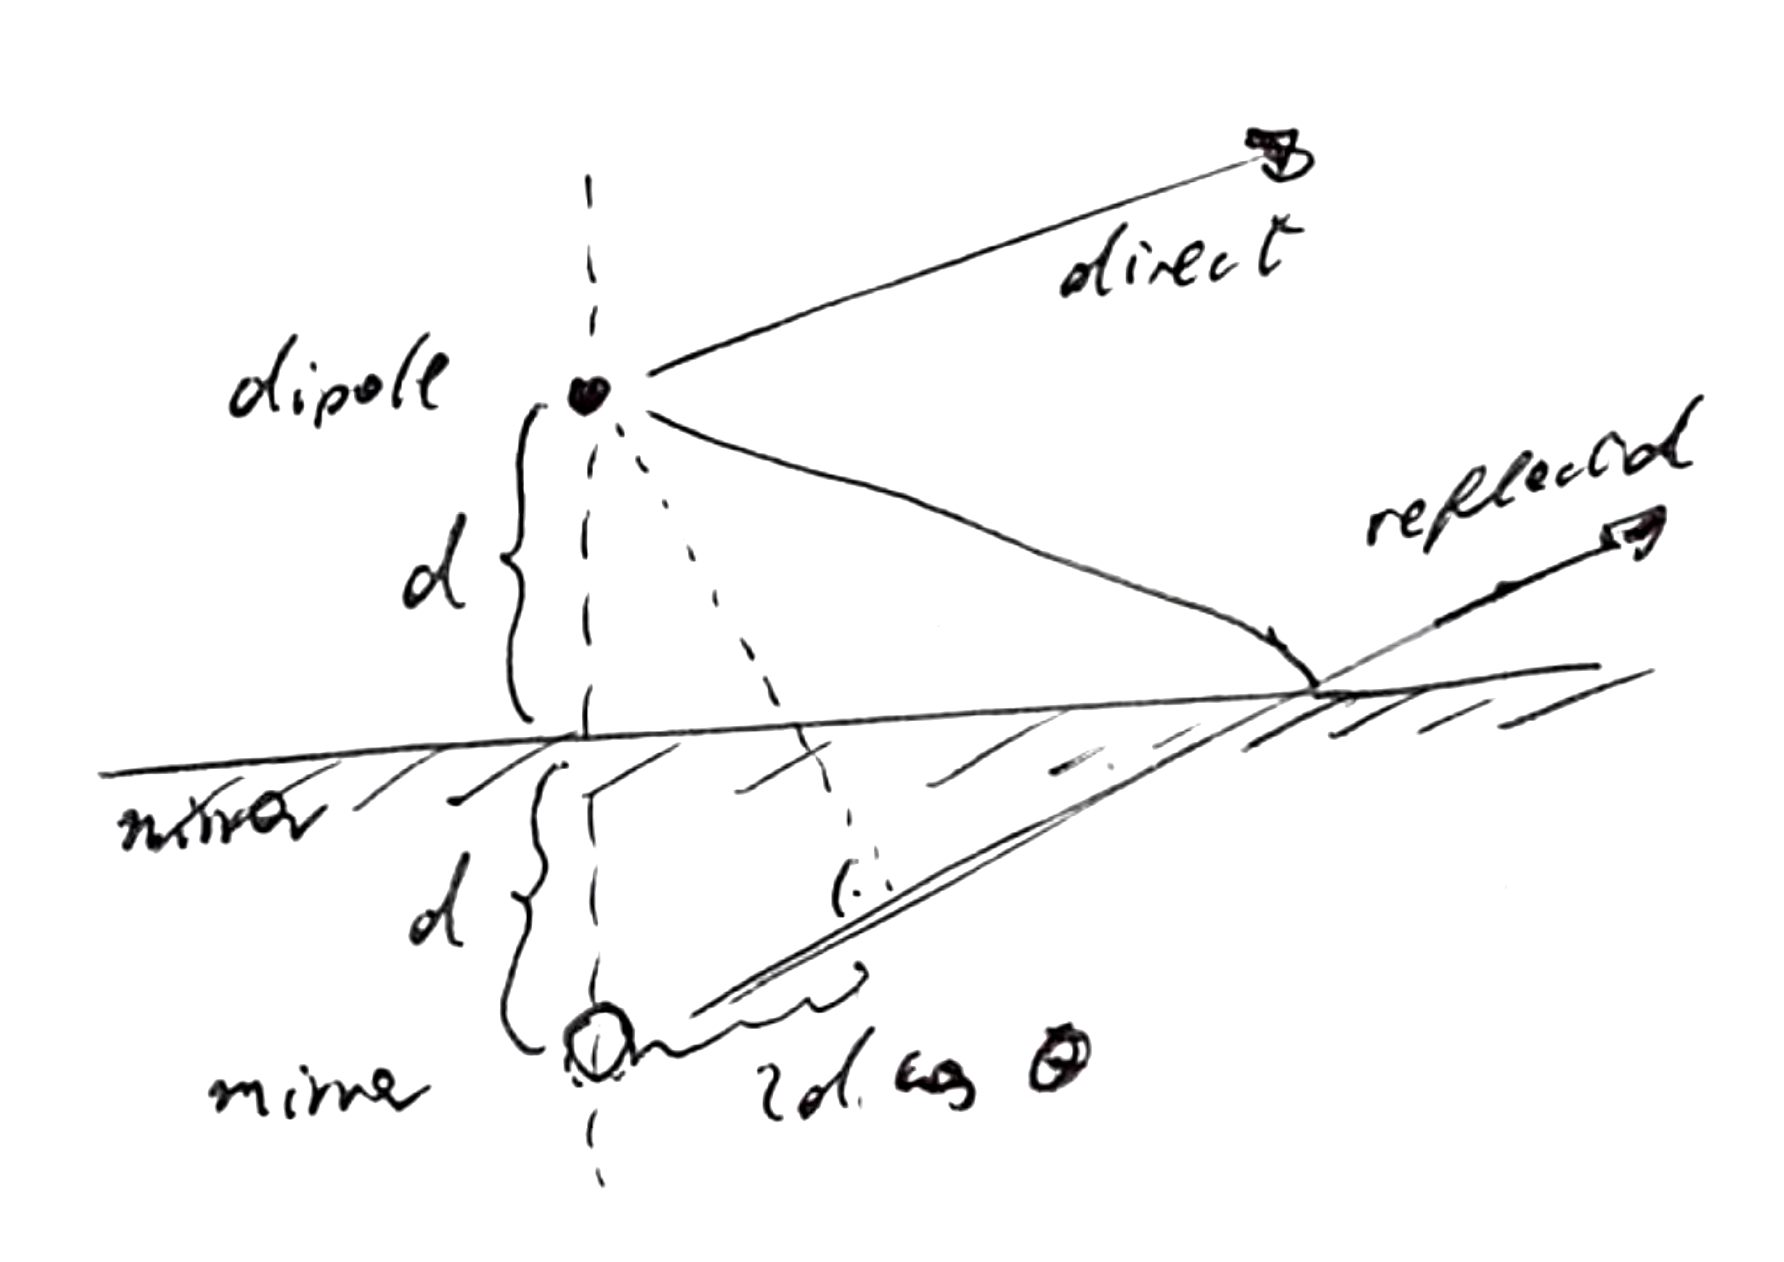 direct
dipole
reflected
d
mirror
d
mirror
2d. cos Θ